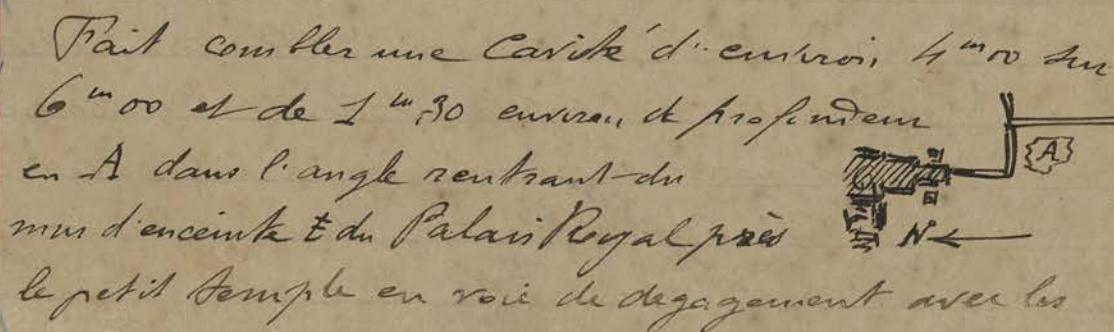 Fait combler une cavité d'environ 4m00 sur
6m00 et de 1m,30 environ de profondeur
en A dans l'angle rentrant du
mur d'enceinte E du Palais Royal près
le petit temple en voie de degagement avec les
A
N